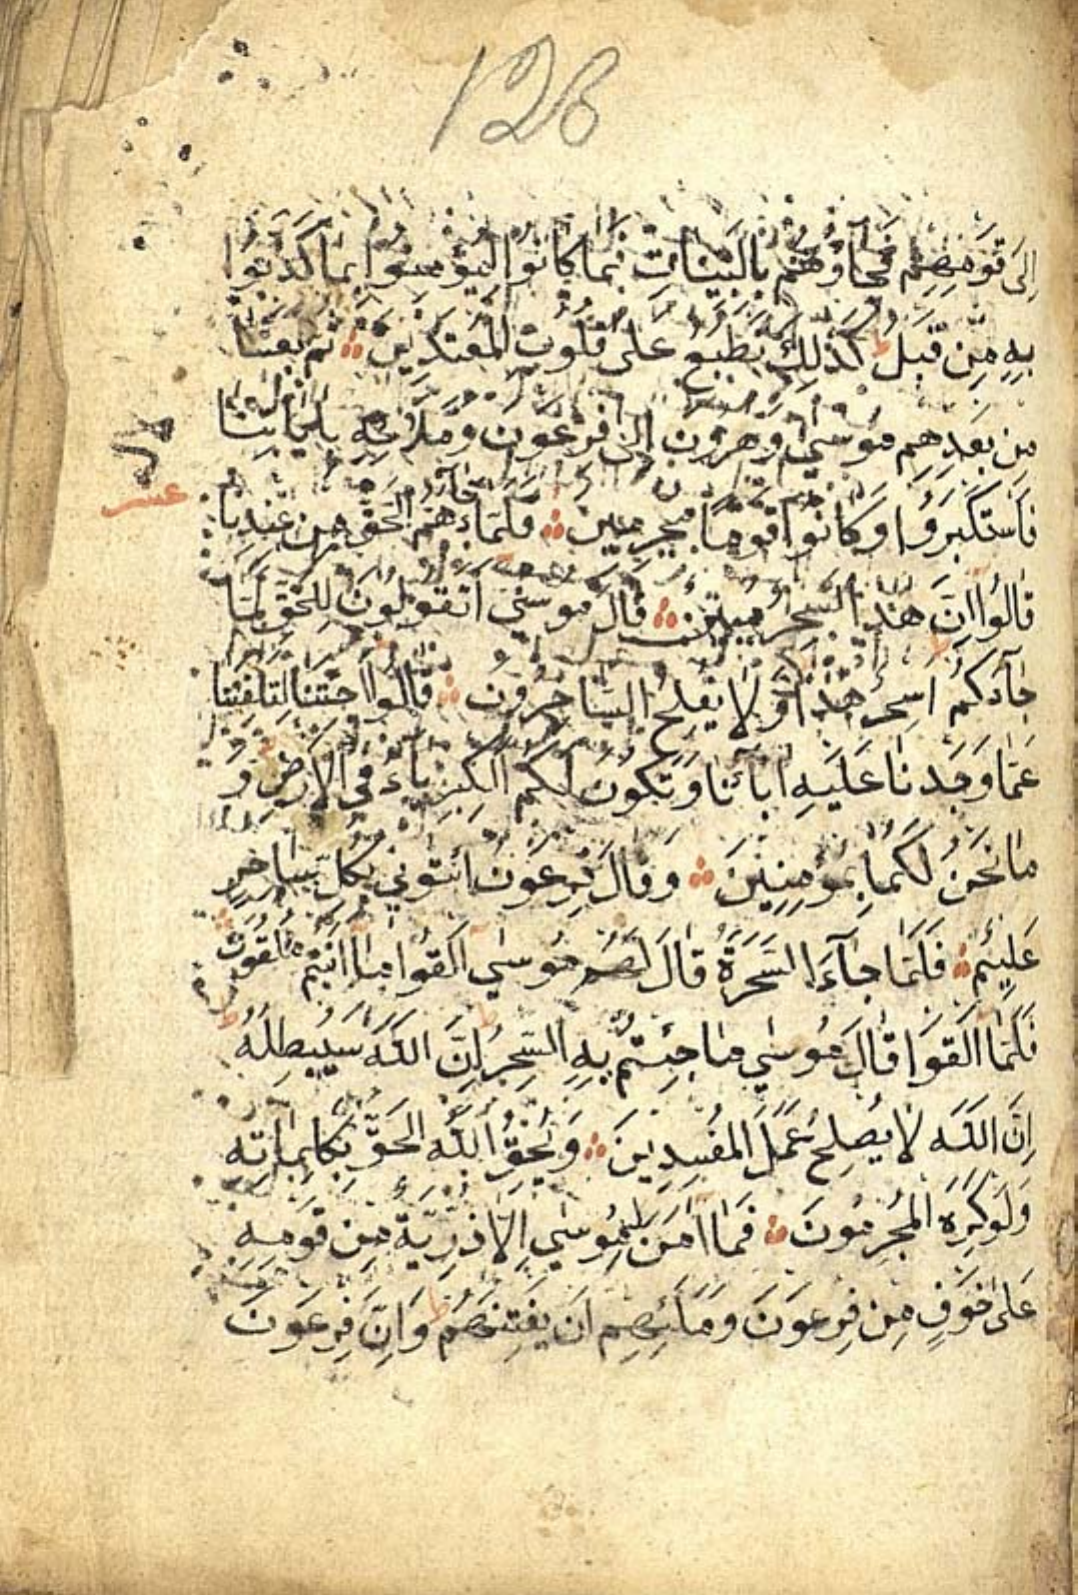 128
اِلىَ قَوْمِهِمْ فَجَآؤُهُمْ بِالْبَيِّنَاتِ فَمَا كَانُوا لِيُؤْمِنُوا بِمَا كَذَّبُوا
بِهِ مِنْ قَبْلُ ط كَذٰلِكَ نَطْبَعُ عَلىٰ قُلُوبِ الْمُعْتَدِينَ ۞ ثُمَّ بَعَثْنَا
مِنْ بَعْدِهِمْ مُوسٰى وَهٰرُونَ اِلىٰ فِرْعَوْنَ وَمَلَائِهِ بِاٰيَاتِنَا
عشر
فَاسْتَكْبَرُوا وَكَانُوا قَوْمًا مُجْرِمِينَ ۞ فَلَمَّا جَآءَهُمُ الْحَقُّ مِنْ عِنْدِنَا
قَالُوا اِنَّ هٰذَا لَسِحْرٌ مُبِينٌ ۞ قَالَ مُوسٰى اَتَقُولُونَ لِلْحَقِّ لَمَّا
جَآءَكُمْ اَسِحْرٌ هٰذَا وَلَا يُفْلِحُ السَّاحِرُونَ ۞ قَالُوا اَجِئْتَنَا لِتَلْفِتَنَا
عَمَّا وَجَدْنَا عَلَيْهِ اٰبَآئَنَا وَتَكُونَ لَكُمَا الْكِبْرِيَآءُ فِي الْاَرْضِ ط وَ
مَا نَحْنُ لَكُمَا بِمُؤْمِنِينَ ۞ وَقَالَ فِرْعَوْنُ ائْتُونِي بِكُلِّ سَاحِرٍ
عَلِيمٍ ۞ فَلَمَّا جَآءَ السَّحَرَةُ قَالَ لَهُمْ مُوسٰي اَلْقُوا مَا اَنْتُمْ مُلْقُونَ ۞
فَلَمَّا اَلْقَوْا قَالَ مُوسٰي مَا جِئْتُمْ بِهِ السِّحْرُ ط اِنَّ اللّٰهَ سَيُبْطِلُهُ ط
اِنَّ اللّٰهَ لَا يُصْلِحُ عَمَلَ الْمُفْسِدِينَ ۞ وَيُحِقُّ اللّٰهُ الْحَقَّ بِكَلِمَاتِهِ
وَلَوْ كَرِهَ الْمُجْرِمُونَ ۞ فَمَا اٰمَنَ لِمُوسٰي اِلَّا ذُرِّيَّةٌ مِنْ قَوْمِهِ
عَلىٰ خَوْفٍ مِنْ فِرْعَوْنَ وَمَلَئِهِمْ اَنْ يَفْتِنَهُمْ ط وَاِنَّ فِرْعَوْنَ